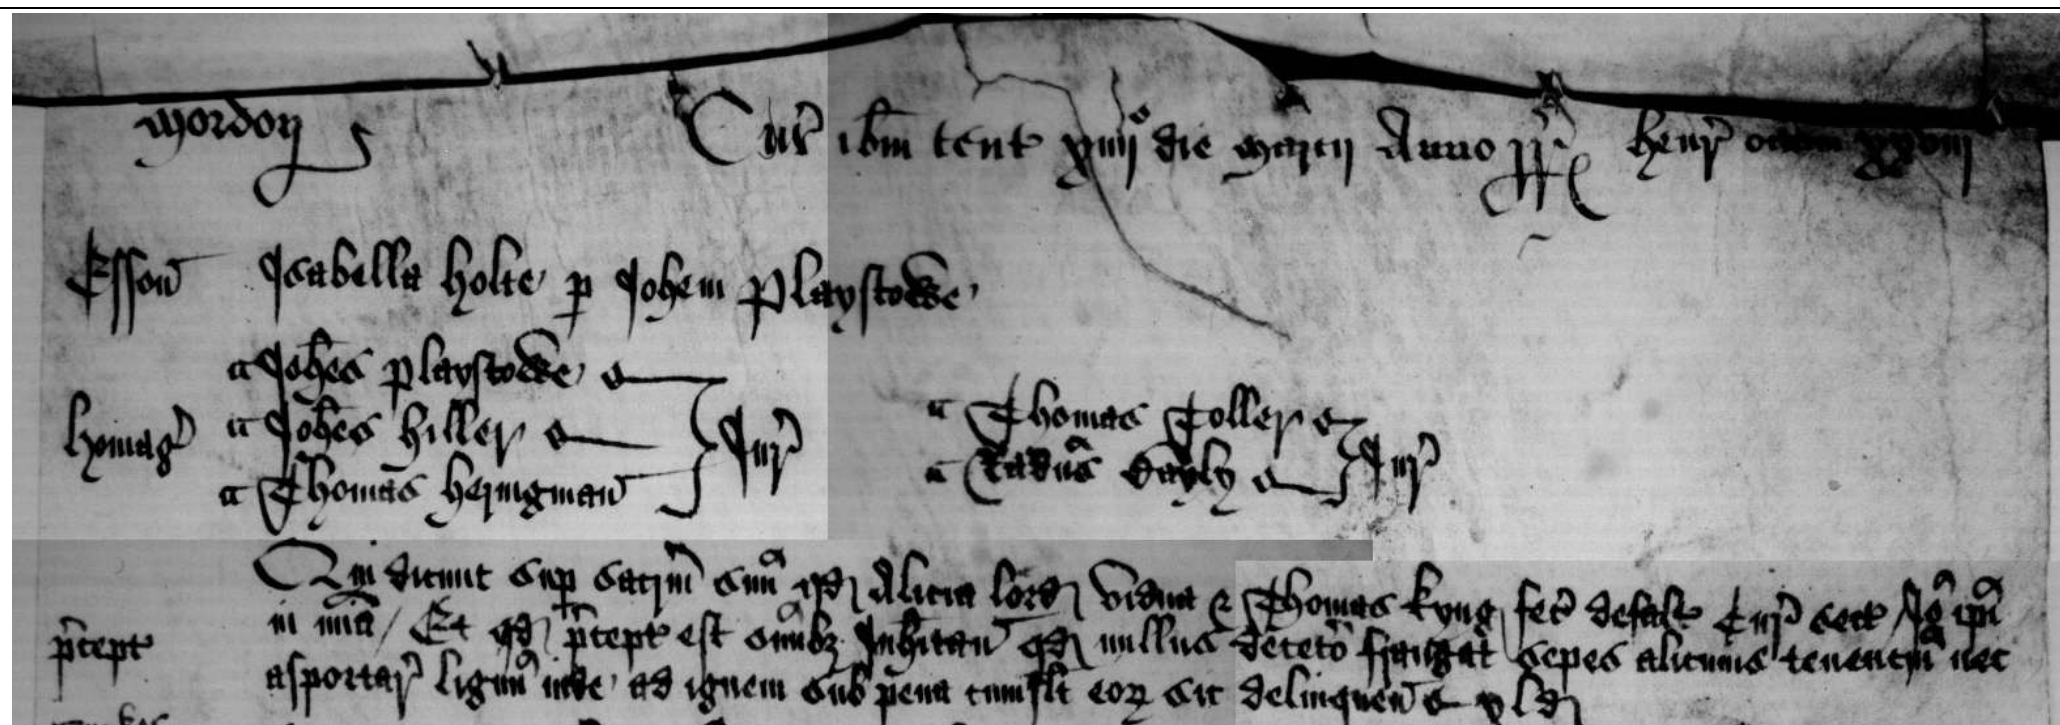 Mordon
Cur ibm tent xiiij° die marcii Anno rr henr octavi xxviij
Esson Isabella Holte p Johem Playstowe
Johes Playstowe
Homag Johes Hiller Jur
Thomas Heryngman
Thomas Toller
Radus Jur
Qui dicunt sup sacrm suu qd Alicia lord vidua & Thomas kyng fec defalt Cur sect Io ipi
in mia / Et qd
pcept pcept est omibz Inhitan qd nullus deceto frangat sepes alicuius tenencm nec
asportar lignu inde ad ignem sub pena cumslt eoz sic delinquen